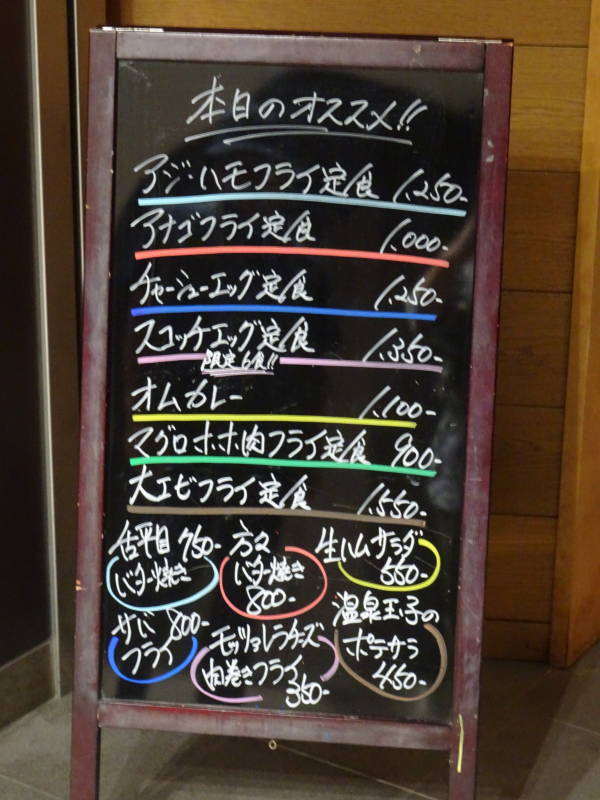 本日のオススメ!!
アジ・ハモフライ定食 1,250-
アナゴフライ定食 1,000-
チャーシューエッグ定食 1,250-
スコッチエッグ定食 1,350-
限定6食!!
オムカレー 1,100-
マグロホホ肉フライ定食 900-
大エビフライ定食 1,550-
舌平目 750-
バター焼き
バター焼き
800-
生ハムサラダ
550-
サバ 800-
フライ
モッツァレラチーズ
肉巻きフライ
350-
温泉玉子の
ポテサラ
450-